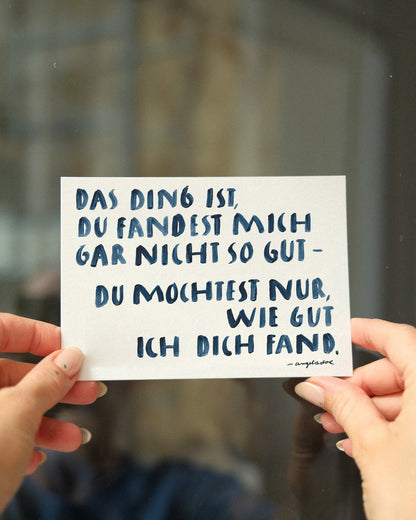 DAS DING IST,
DU FANDEST MICH
GAR NICHT SO GUT –
DU MOCHTEST NUR,
WIE GUT
ICH DICH FAND.
– angeladoe